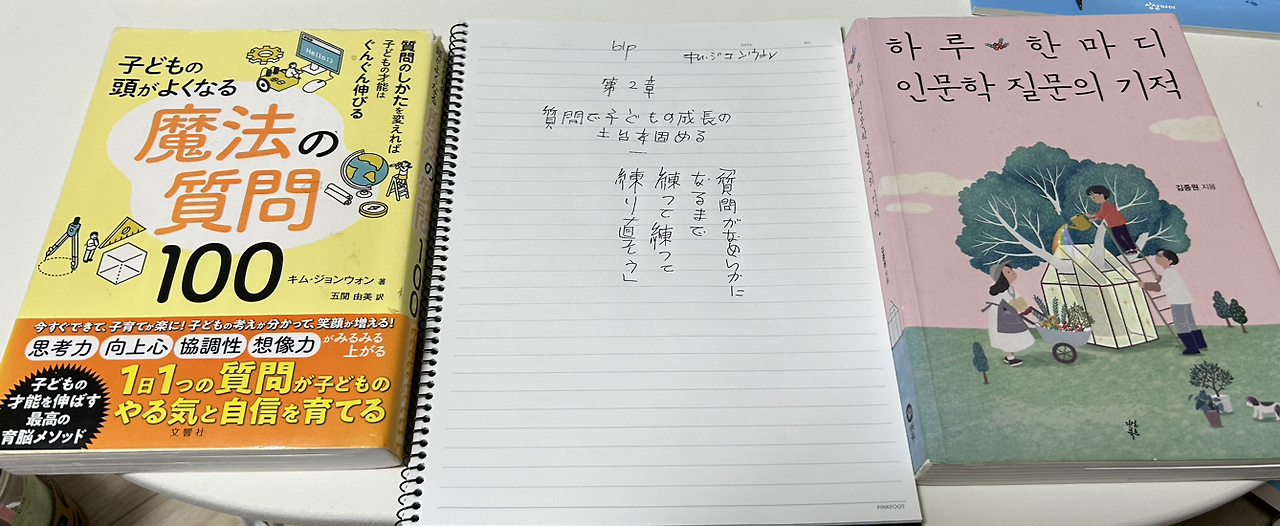 子どもの
頭がよくなる
魔法の
質問
100
質問のしかたを変えれば
子どもの才能は
ぐんぐん伸びる
Hello:)
キム・ジョンウォン 著
五関 由美 訳
今すぐできて、子育てが楽に!子どもの考えが分かって、笑顔が増える!
思考力 向上心 協調性 想像力 がみるみる
上がる
子どもの
才能を伸ばす
最高の
育脳メソッド
1日1つの質問が子どもの
やる気と自信を育てる
文響社
61p
キム・ジョンウォン
第2章
質問で子どもの成長の
土台を固める
「質問がなめらかに
なるまで
練って練って
練り直そう」
PINKFOOT
하루 한마디
인문학 질문의 기적
김종원 지음
상상아이